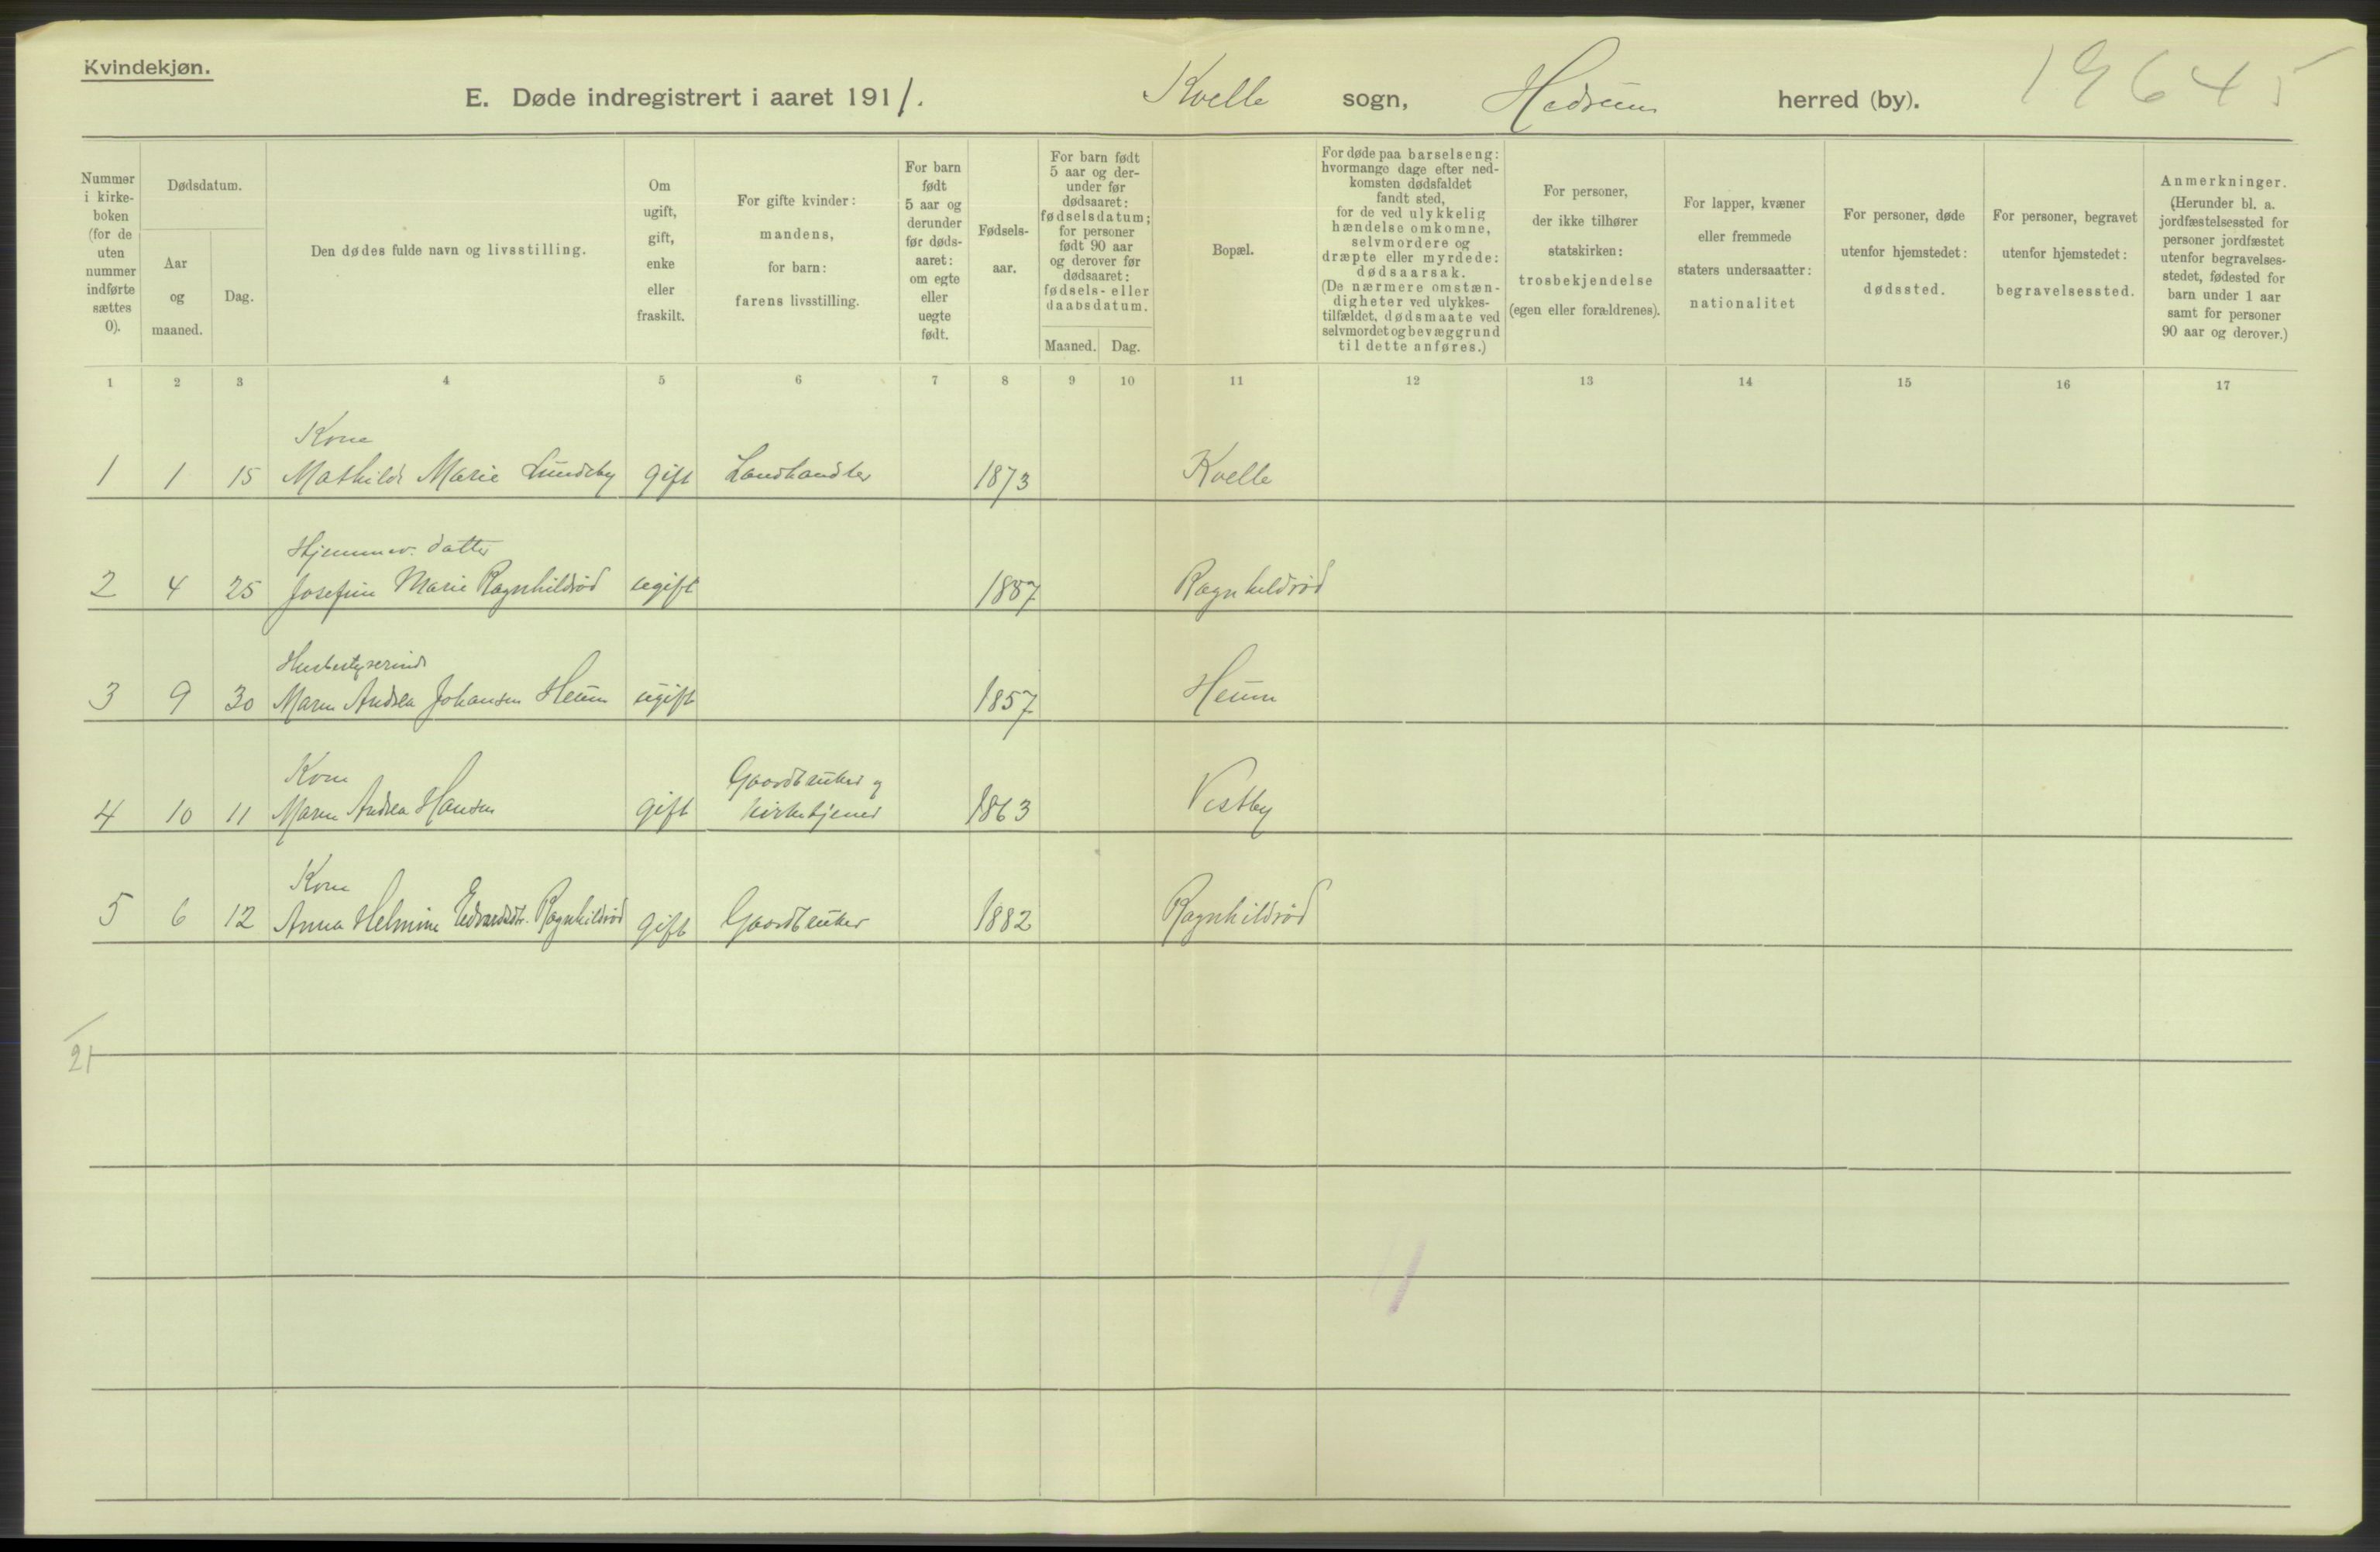 Kvindekjøn.
E. Døde indregistrert i aaret 1911. Kvelle sogn, Hedrum herred (by). 1964 5
Nummer i kirke-boken (for de uten nummer indførte sættes 0).
Dødsdatum.
Aar og maaned.
Dag.
Den dødes fulde navn og livsstilling.
Om ugift, gift, enke eller fraskilt.
For gifte kvinder: mandens, for barn: farens livsstilling.
For barn født 5 aar og derunder før døds-aaret: om egte eller uegte født.
Fødsels-aar.
For barn født 5 aar og der-under før dødsaaret: fødselsdatum; for personer født 90 aar og derover før dødsaaret: fødsels- eller daabsdatum.
Maaned. Dag.
Bopæl.
For døde paa barselseng: hvormange dage efter ned-komsten dødsfaldet fandt sted, for de ved ulykkelig hændelse omkomne, selvmordere og dræpte eller myrdede: dødsaarsak. (De nærmere omstæn-digheter ved ulykkes-tilfældet, dødsmaate ved selvmordet og bevæggrund til dette anføres.)
For personer, der ikke tilhører statskirken: trosbekjendelse (egen eller forældrenes).
For lapper, kvæner eller fremmede staters undersaatter: nationalitet
For personer, døde utenfor hjemstedet: dødssted.
For personer, begravet utenfor hjemstedet: begravelsessted.
Anmerkninger. (Herunder bl. a. jordfæstelsessted for personer jordfæstet utenfor begravelses-stedet, fødested for barn under 1 aar samt for personer 90 aar og derover.)
1 2 3 4 5 6 7 8 9 10 11 12 13 14 15 16 17
Kone
1 1 15 Mathilde Marie Lundeby gift Landhandler 1873 Kvelle
Hjemmev. datter
2 4 25 Josefine Marie Ragnhildrød ugift 1887 Ragnhildrød
Husbestyrerinde
3 9 30 Maren Andrea Johansen Heum ugift 1857 Heum
Kone Gaardbruker og
4 10 11 Maren Andrea Hansen gift kirketjener 1863 Vestby
Kone
5 6 12 Anna Helmine Edvardsdtr. Ragnhildrød gift Gaardbruker 1882 Ragnhildrød
21